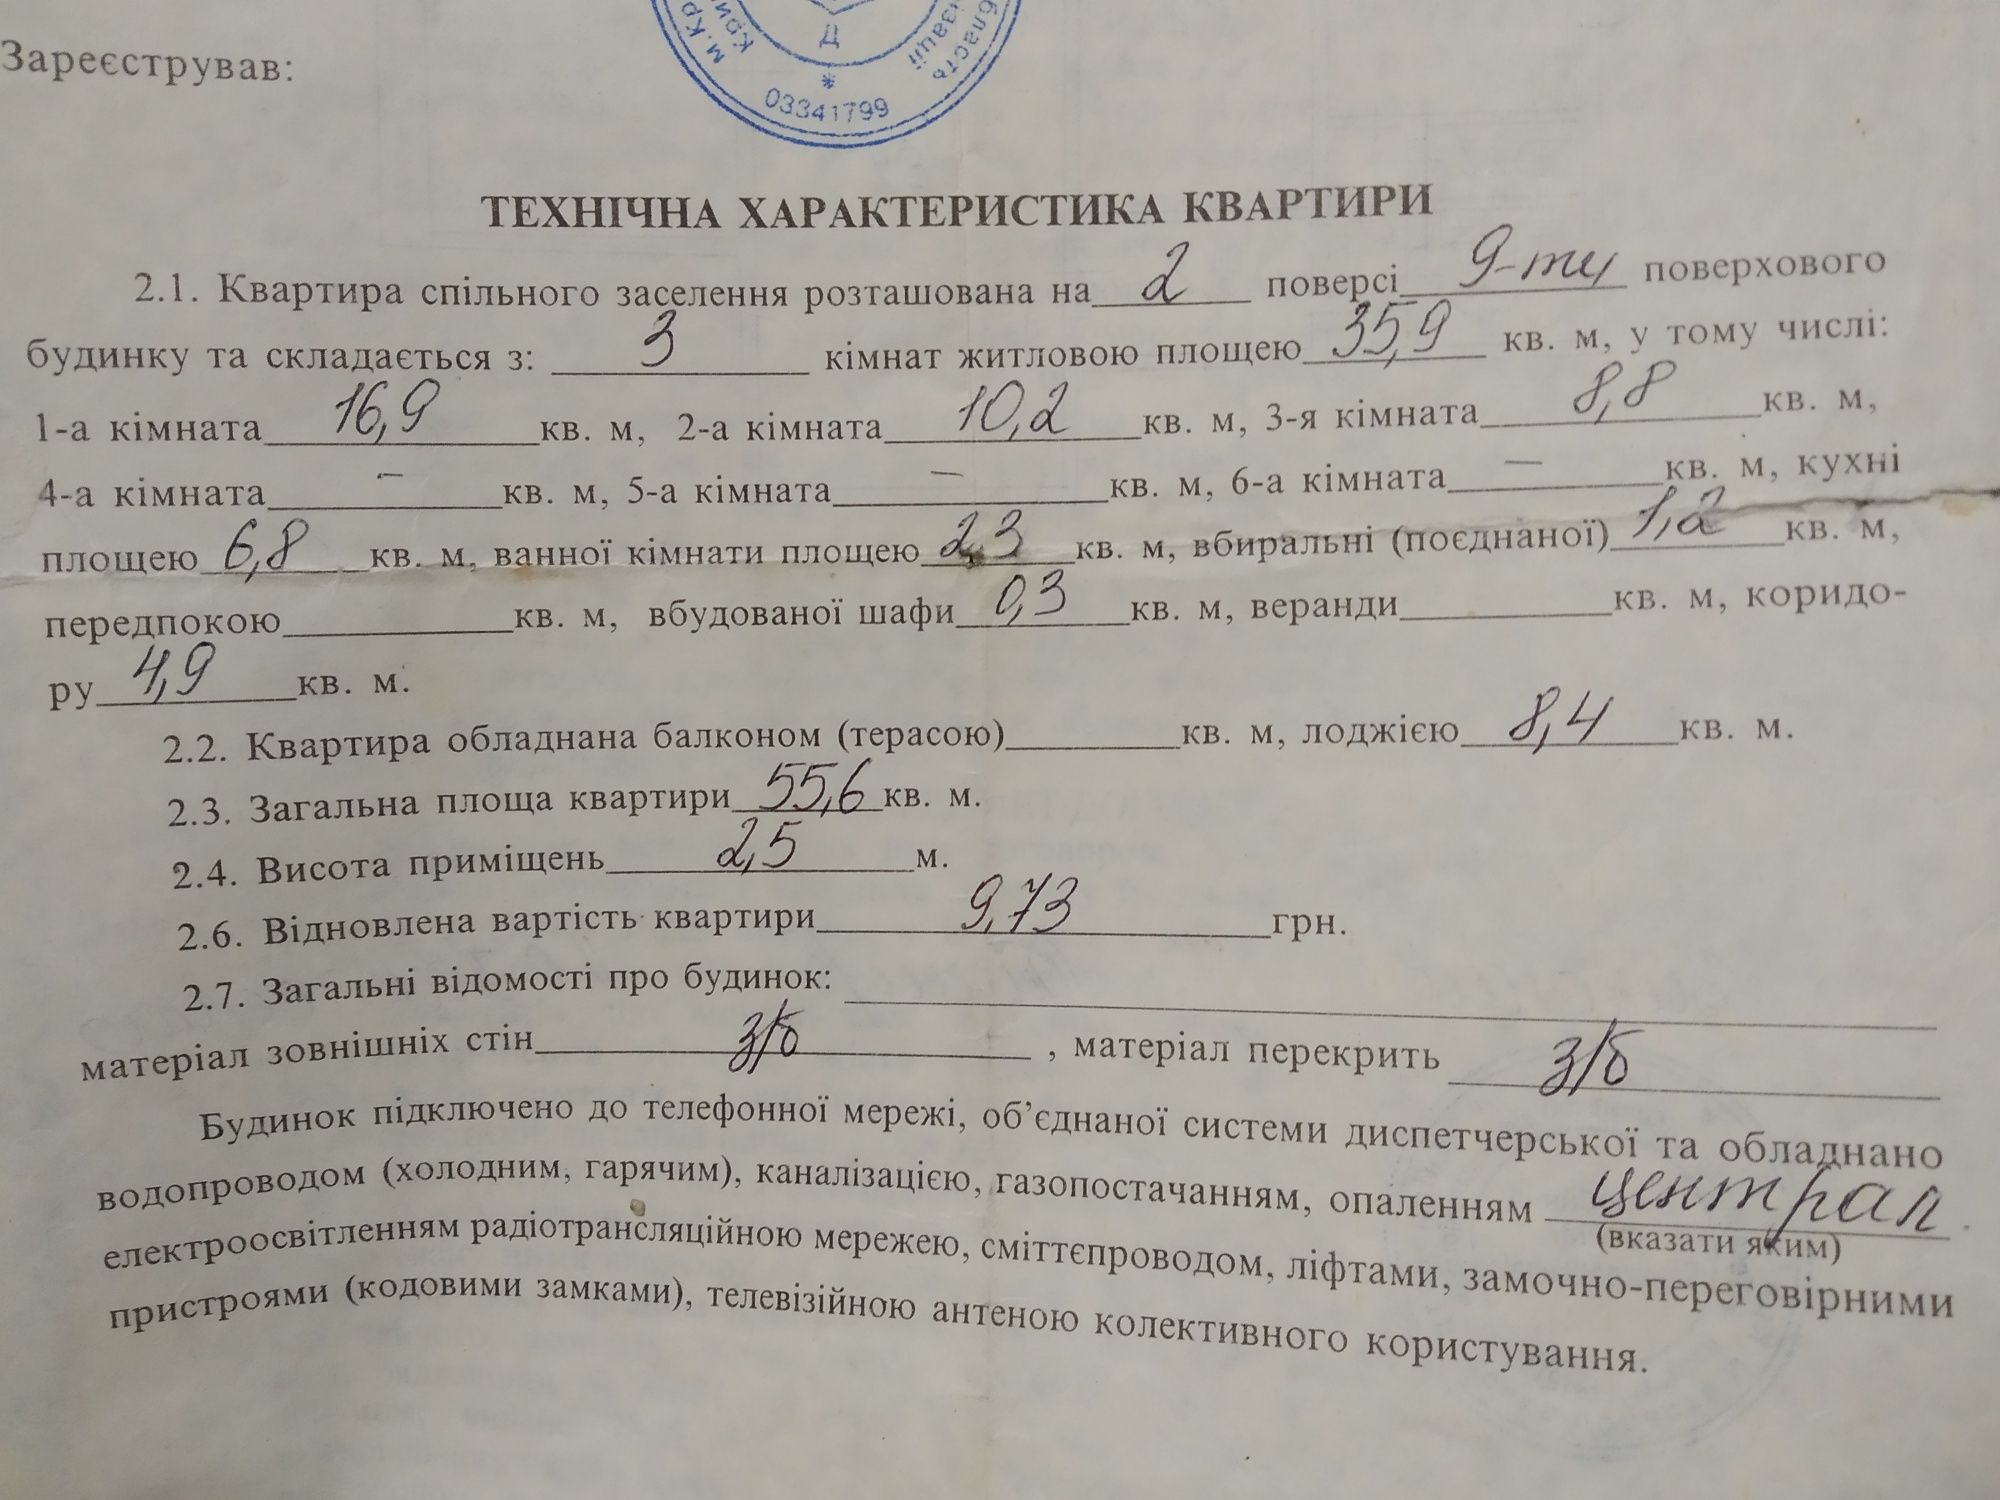 Зареєстрував:
м. Кр
Кри
Д
ізації
бласть
*
03341799
ТЕХНІЧНА ХАРАКТЕРИСТИКА КВАРТИРИ
2.1. Квартира спільного заселення розташована на 2 поверсі 9-ти поверхового
будинку та складається з: 3 кімнат житловою площею 35,9 кв. м, у тому числі:
1-а кімната 16,9 кв. м, 2-а кімната 10,2 кв. м, 3-я кімната 8,8 кв. м,
4-а кімната – кв. м, 5-а кімната – кв. м, 6-а кімната — кв. м, кухні
площею 6,8 кв. м, ванної кімнати площею 2,3 кв. м, вбиральні (поєднаної) 1,2 кв. м,
передпокою кв. м, вбудованої шафи 0,3 кв. м, веранди кв. м, коридо-
ру 4,9 кв. м.
2.2. Квартира обладнана балконом (терасою) кв. м, лоджією 8,4 кв. м.
2.3. Загальна площа квартири 55,6 кв. м.
2.4. Висота приміщень 2,5 м.
2.6. Відновлена вартість квартири 9,73 грн.
2.7. Загальні відомості про будинок:
матеріал зовнішніх стін з/б , матеріал перекрить з/б
Будинок підключено до телефонної мережі, об’єднаної системи диспетчерської та обладнано
водопроводом (холодним, гарячим), каналізацією, газопостачанням, опаленням централ.
(вказати яким)
електроосвітленням радіотрансляційною мережею, сміттєпроводом, ліфтами, замочно-переговірними
пристроями (кодовими замками), телевізійною антеною колективного користування.